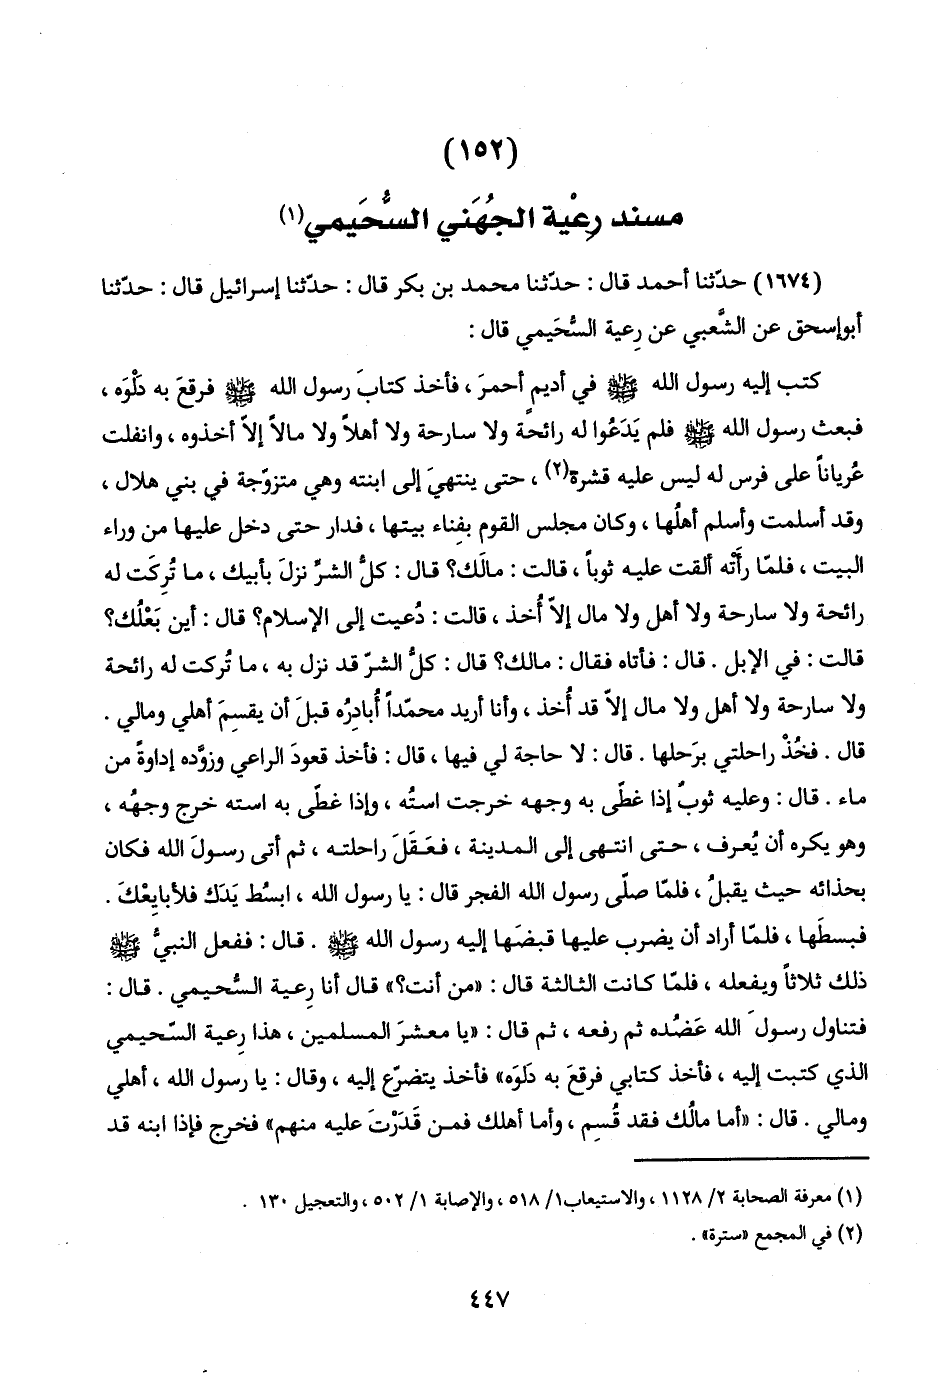 (١٥٢)
مسند رِعْية الجُهَني السُّحَيمي(١)
(١٦٧٤) حدّثنا أحمد قال : حدّثنا محمد بن بكر قال : حدّثنا إسرائيل قال : حدّثنا
أبوإسحق عن الشَّعبي عن رِعية السُّحَيمي قال :
كتب إليه رسول الله ﷺ في أديم أحمرَ ، فأخذ كتابَ رسول الله ﷺ فرقعَ به دَلْوَه ،
فبعث رسول الله ﷺ فلم يَدَعُوا له رائحةً ولا سارحة ولا أهلاً ولا مالاً إلاّ أخذوه ، وانفلت
عُرياناً على فرس له ليس عليه قشرة(٢) ، حتى ينتهيَ إلى ابنته وهي متزوّجة في بني هلال ،
وقد أسلمت وأسلم أهلُها ، وكان مجلس القوم بفِناء بيتها ، فدار حتى دخل عليها من وراء
البيت ، فلمّا رأَتْه ألقت عليه ثوباً ، قالت : مالَك؟ قال : كلُّ الشرِّ نزلَ بأبيك ، ما تُرِكَت له
رائحة ولا سارحة ولا أهل ولا مال إلاّ أُخذ ، قالت : دُعيت إلى الإسلام؟ قال : أين بَعْلُك؟
قالت : في الإبل . قال : فأتاه فقال : مالك؟ قال : كلُّ الشرّ قد نزل به ، ما تُركت له رائحة
ولا سارحة ولا أهل ولا مال إلاّ قد أُخذ ، وأنا أريد محمّداً أُبادِرُه قبلَ أن يقسِمَ أهلي ومالي .
قال . فخُذْ راحلتي برَحلها . قال : لا حاجة لي فيها ، قال : فأخذ قعودَ الراعي وزوَّده إداوةً من
ماء . قال : وعليه ثوبٌ إذا غطّى به وجهه خرجت استُه ، وإذا غطّى به استه خرج وجهُه ،
وهو يكره أن يُعرف ، حتى انتهى إلى المدينة ، فعَقَلَ راحلته ، ثم أتى رسولَ الله فكان
بحذائه حيث يقبلُ ، فلمّا صلّى رسول الله الفجر قال : يا رسول الله ، ابسُط يَدَك فلأبايِعْكَ .
فبسطَها ، فلمّا أراد أن يضرب عليها قبضَها إليه رسول الله ﷺ . قال : ففعل النبيُّ ﷺ
ذلك ثلاثاً ويفعله ، فلمّا كانت الثالثة قال : «من أنت؟» قال أنا رِعية السُّحيمي . قال :
فتناول رسولَ الله عَضُده ثم رفعه ، ثم قال : «يا معشرَ المسلمين ، هذا رِعية السّحيمي
الذي كتبت إليه ، فأخذ كتابي فرقعَ به دَلوَه» فأخذ يتضرّع إليه ، وقال : يا رسول الله ، أهلي
ومالي . قال : «أما مالُك فقد قُسِم ، وأما أهلك فمن قَدَرْتَ عليه منهم» فخرج فإذا ابنه قد
(١) معرفة الصحابة ٢/ ١١٢٨ ، والاستيعاب١/ ٥١٨ ، والإصابة ١/ ٥٠٢ ، والتعجيل ١٣٠ .
(٢) في المجمع «سترة» .
٤٤٧